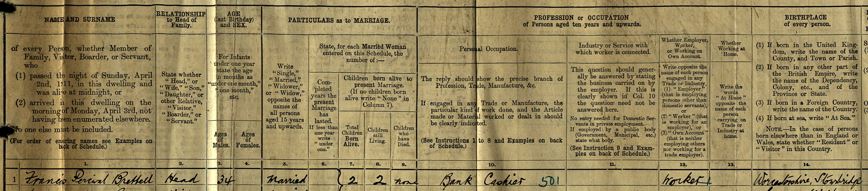 NAME AND SURNAME
of every Person, whether Member of
Family, Visitor, Boarder, or Servant,
who
(1) passed the night of Sunday, April
2nd, 1911, in this dwelling and
was alive at midnight, or
(2) arrived in this dwelling on the
morning of Monday, April 3rd, not
having been enumerated elsewhere.
No one else must be included.
(For order of entering names see Examples on
back of Schedule.)
1.
RELATIONSHIP
to Head of
Family.
State whether
"Head," or
"Wife," "Son,"
"Daughter," or
other Relative,
"Visitor,"
"Boarder," or
"Servant."
2.
AGE
(last Birthday)
and SEX.
For Infants
under one year
state the age
in months as
"under one month,"
"one month,"
etc.
Ages
of
Males.
3.
Ages
of
Females.
4.
PARTICULARS as to MARRIAGE.
Write
"Single,"
"Married,"
"Widower,"
or "Widow,"
opposite the
names of
all persons
aged 15 years
and upwards.
5.
State, for each Married Woman
entered on this Schedule, the
number of:—
Completed
years the
present
Marriage
has
lasted.
If less than
one year
write
"under
one."
6.
Children born alive to
present Marriage.
(If no children born
alive write "None" in
Column 7).
Total
Children
Born
Alive.
7.
Children
still
Living.
8.
Children
who
have
Died.
9.
PROFESSION or OCCUPATION
of Persons aged ten years and upwards.
Personal Occupation.
The reply should show the precise branch of
Profession, Trade, Manufacture, &c.
If engaged in any Trade or Manufacture, the
particular kind of work done, and the Article
made or Material worked or dealt in should
be clearly indicated.
(See Instructions 1 to 8 and Examples on back of
Schedule.)
10.
Industry or Service with
which worker is connected.
This question should gener-
ally be answered by stating
the business carried on by
the employer. If this is
clearly shown in Col. 10
the question need not be
answered here.
No entry needed for Domestic
Servants in private employment.
If employed by a public body
(Government, Municipal, etc.)
state what body.
(See Instruction 9 and Exam-
ples on back of Schedule.)
11.
Whether Employer,
Worker,
or Working on
Own Account.
12.
Whether
Working at
Home.
13.
BIRTHPLACE
of every person.
(1) If born in the United King-
dom, write the name of the
County, and Town or Parish.
(2) If born in any other part of
the British Empire, write
the name of the Dependency,
Colony, etc., and of the
Province or State.
(3) If born in a Foreign Country,
write the name of the Country.
(4) If born at sea, write "At Sea."
NOTE.—In the case of persons
born elsewhere than in England or
Wales, state whether "Resident" or
"Visitor" in this Country.
14.
1 Francis Percival Brettell Head 34 Married 2 2 none Bank Cashier 501 Worker Worcestershire, Stourbridge